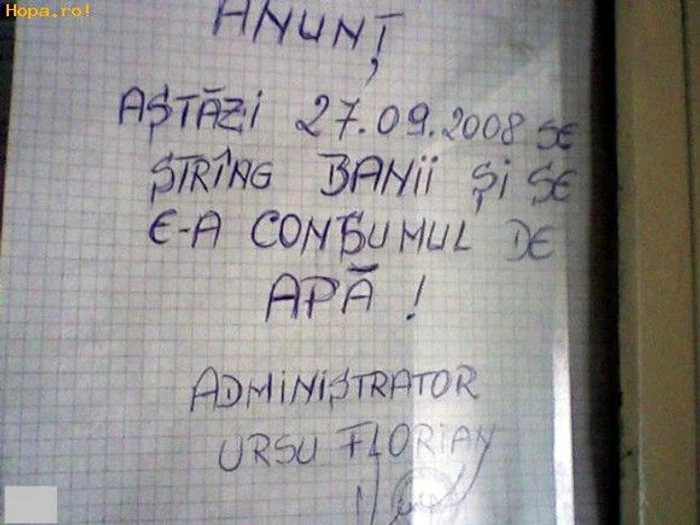 Hopa.ro!
ANUNȚ
AȘTĂZi 27.09.2008 SE
ȘTRÎNG BANii ȘI SE
E-A CONȘUMUL DE
APĂ !
ADMiNiȘTRATOR
URSU FLORIAN